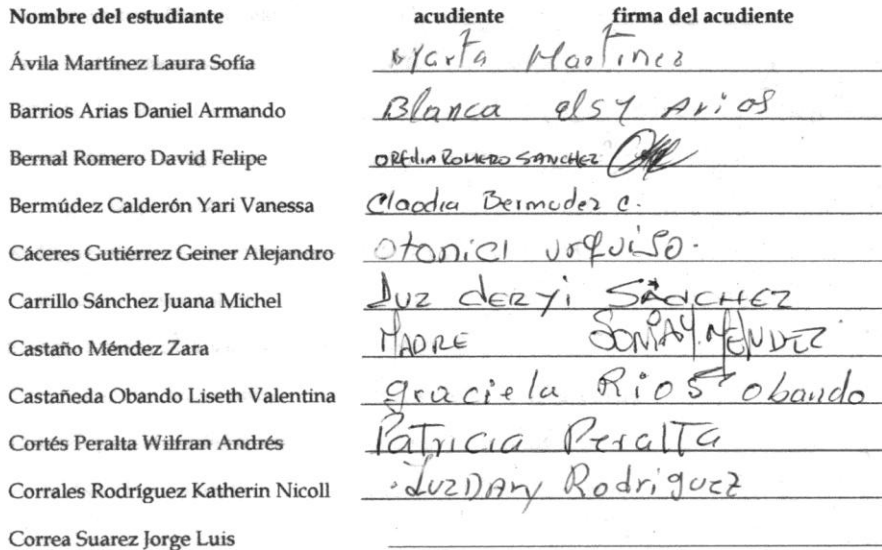 Nombre del estudiante acudiente firma del acudiente
Ávila Martínez Laura Sofía Marta Martinez
Barrios Arias Daniel Armando Blanca elsy Arios
Bernal Romero David Felipe ORFIlIA ROMERO SANCHEZ
Bermúdez Calderón Yari Vanessa Claodia Bermudez C.
Cáceres Gutiérrez Geiner Alejandro Otoniel urquiso.
Carrillo Sánchez Juana Michel Luz dERYi SÁNCHEZ
Castaño Méndez Zara MADRE SONIA Y. MENDEZ
Castañeda Obando Liseth Valentina graciela Rios obando
Cortés Peralta Wilfran Andrés Patricia Peralta
Corrales Rodríguez Katherin Nicoll LuzDAry Rodriguez
Correa Suarez Jorge Luis